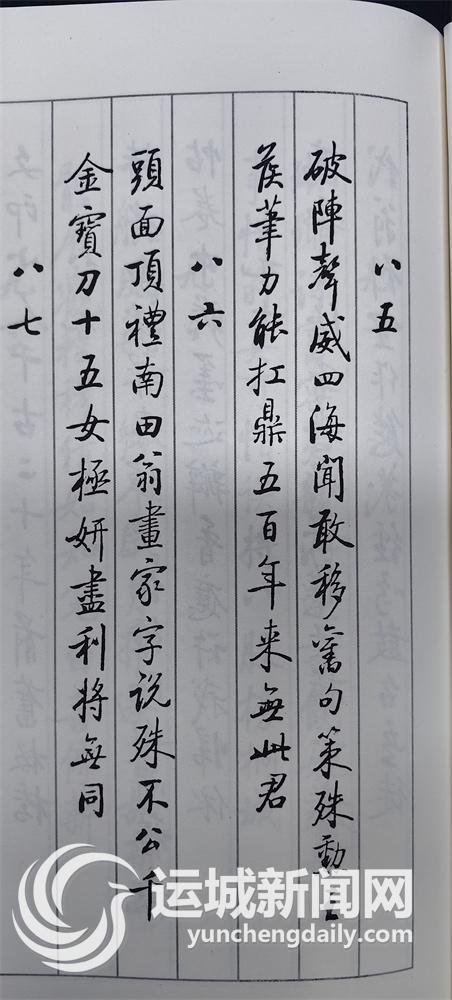 八五
破陣聲威四海聞敢移舊句策殊勳王
矦筆力能扛鼎五百年来無此君
八六
頭面頂禮南田翁畫家字説殊不公千
金寶刀十五女極妍盡利將無同
八七
运城新闻网
yunchengdaily.com